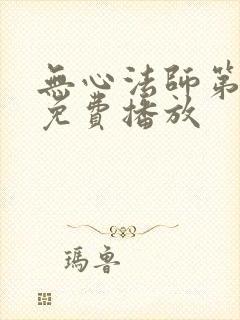 無心法師第
免費播放
瑪魯